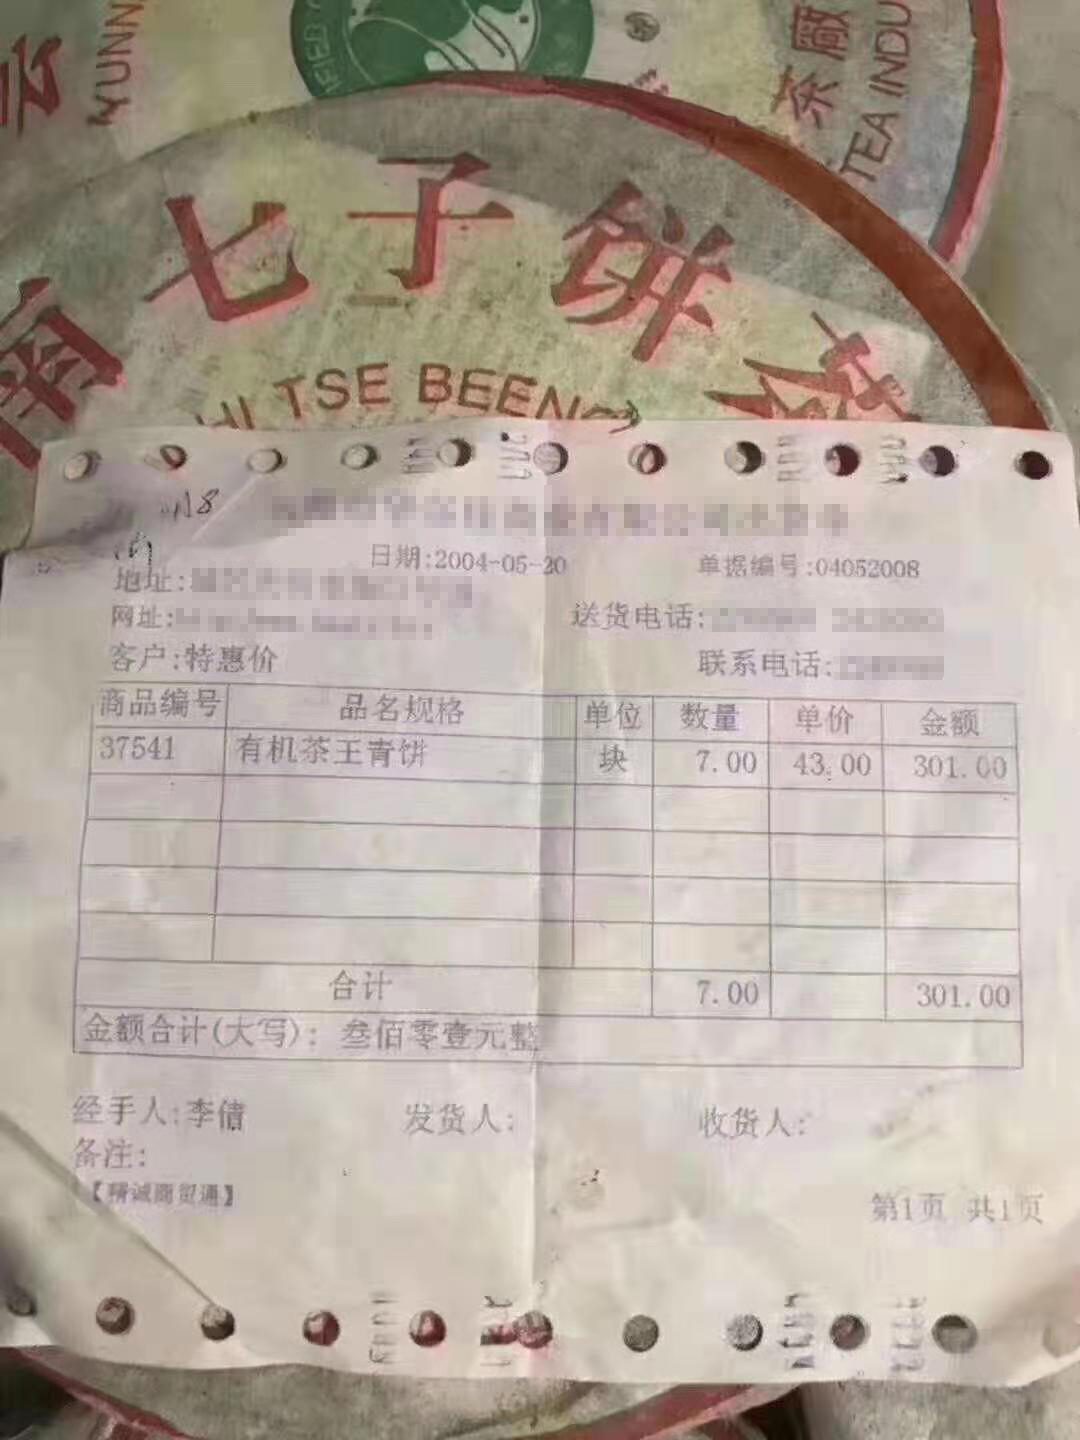 云
YUNN
茶廠
TEA INDU
南七子饼茶
HI TSE BEENG
日期:2004-05-20
单据编号:04052008
地址:
网址:
送货电话:
客户:特惠价
联系电话:
商品编号 品名规格 单位 数量 单价 金额
37541 有机茶王青饼 块 7.00 43.00 301.00
合计 7.00 301.00
金额合计(大写): 叁佰零壹元整
经手人:李倩 发货人: 收货人:
备注:
【精诚商贸通】
第1页 共1页